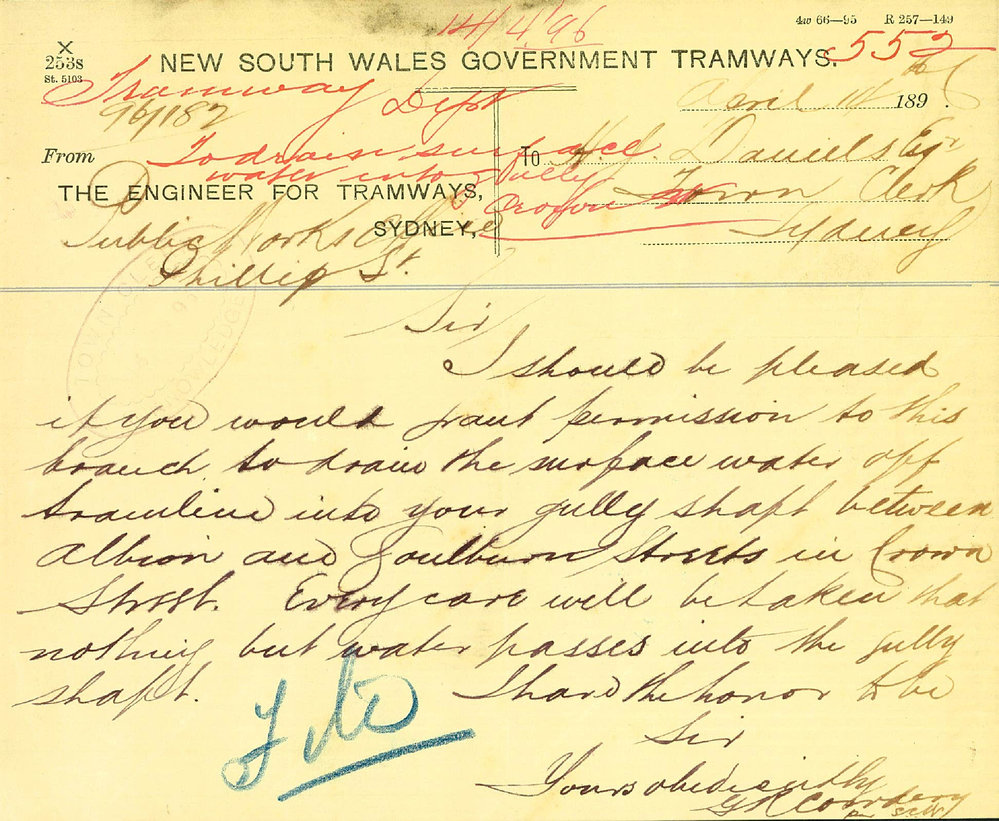 14/4/96
4w 66—95 R 257—149
X
253s
St. 5103
NEW SOUTH WALES GOVERNMENT TRAMWAYS.
552
Tramway Dept
96/182
April 14 1896.
From
To drain surface
water into Gully
Crown St
THE ENGINEER FOR TRAMWAYS,
SYDNEY,
Public Works Office
Phillip St.
To H. J. Daniels Esqr
Town Clerk
Sydney
TOWN CLERK
Sir
I should be pleased
if you would grant permission to this
branch to drain the surface water off
tramline into your gully shaft between
Albion and Goulburn Streets in Crown
Street. Every care will be taken that
nothing but water passes into the gully
shaft. I have the honor to be
Sir
Yours obediently
GR Cowdery
File